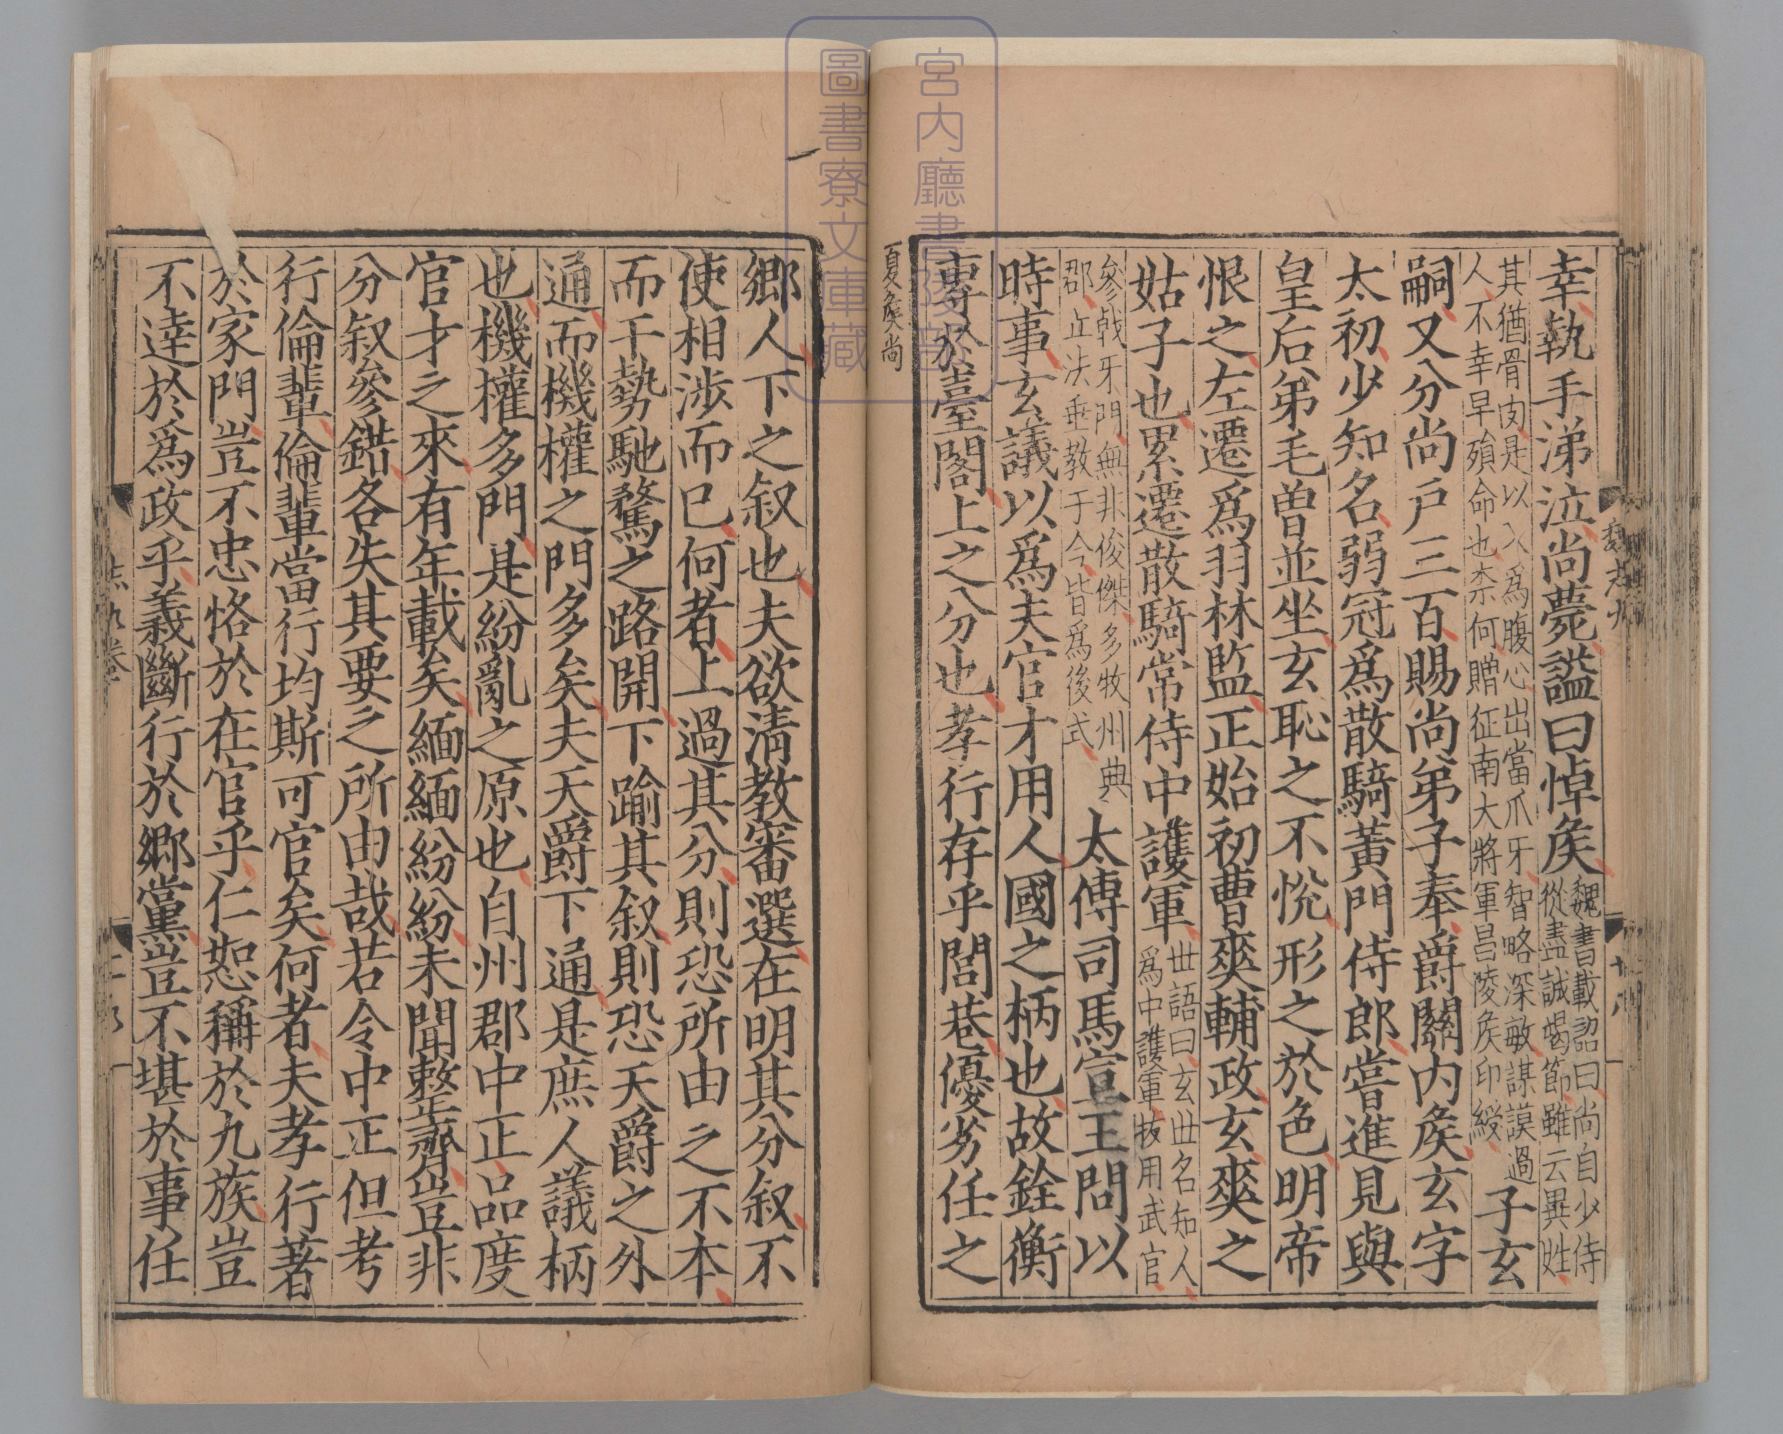 幸執手涕泣尚薨謚曰悼矦魏書載詔曰尚自少侍
從盡誠竭節雖云異姓
其猶骨肉是以入爲腹心出當爪牙智略深敏謀謨過
人不幸早殞命也柰何贈征南大將軍昌陵矦印綬子玄
嗣又分尚戶三百賜尚弟子奉爵關內矦玄字
太初少知名弱冠爲散騎黃門侍郎嘗進見與
皇后弟毛曽並坐玄恥之不恱形之於色明帝
恨之左遷爲羽林監正始初曹爽輔政玄爽之
姑子也累遷散騎常侍中護軍世語曰玄世名知人
爲中護軍拔用武官
參戟牙門無非俊傑多牧州典
郡立法垂教于今皆爲後式太傅司馬宣王問以
時事玄議以爲夫官才用人國之柄也故銓衡
專於臺閣上之分也孝行存乎閭巷優劣任之
夏矦尚
鄉人下之叙也夫欲清教審選在明其分叙不
使相涉而已何者上過其分則恐所由之不本
而干勢馳騖之路開下踰其叙則恐天爵之外
通而機權之門多矣夫天爵下通是庶人議柄
也機權多門是紛亂之原也自州郡中正品度
官才之來有年載矣緬緬紛紛未聞整齊豈非
分叙參錯各失其要之所由哉若令中正但考
行倫輩倫輩當行均斯可官矣何者夫孝行著
於家門豈不忠恪於在官乎仁恕稱於九族豈
不達於爲政乎義斷行於鄉黨豈不堪於事任
魏志九
十八
志九卷
宮内廳書陵部
圖書寮文庫藏